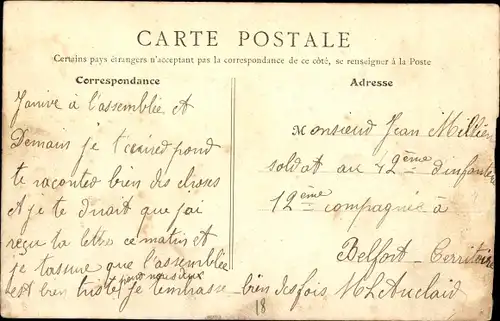 CARTE POSTALE
Certains pays étrangers n'acceptant pas la correspondance de ce côté, se renseigner à la Poste
Correspondance
Adresse
J'arrive à l'assemblée et
Demain je
te raconter bien des choses
et je te dirait que j'ai
reçu ta lettre ce matin et
je t'assure que l'assemblée
est bien triste pour nous deux je t'embrasse bien des fois M L Auclaid
Monsieud Jean Millie
soldat au 42ème d'infanterie
12ème compagnie à
Belfort Territoire
18